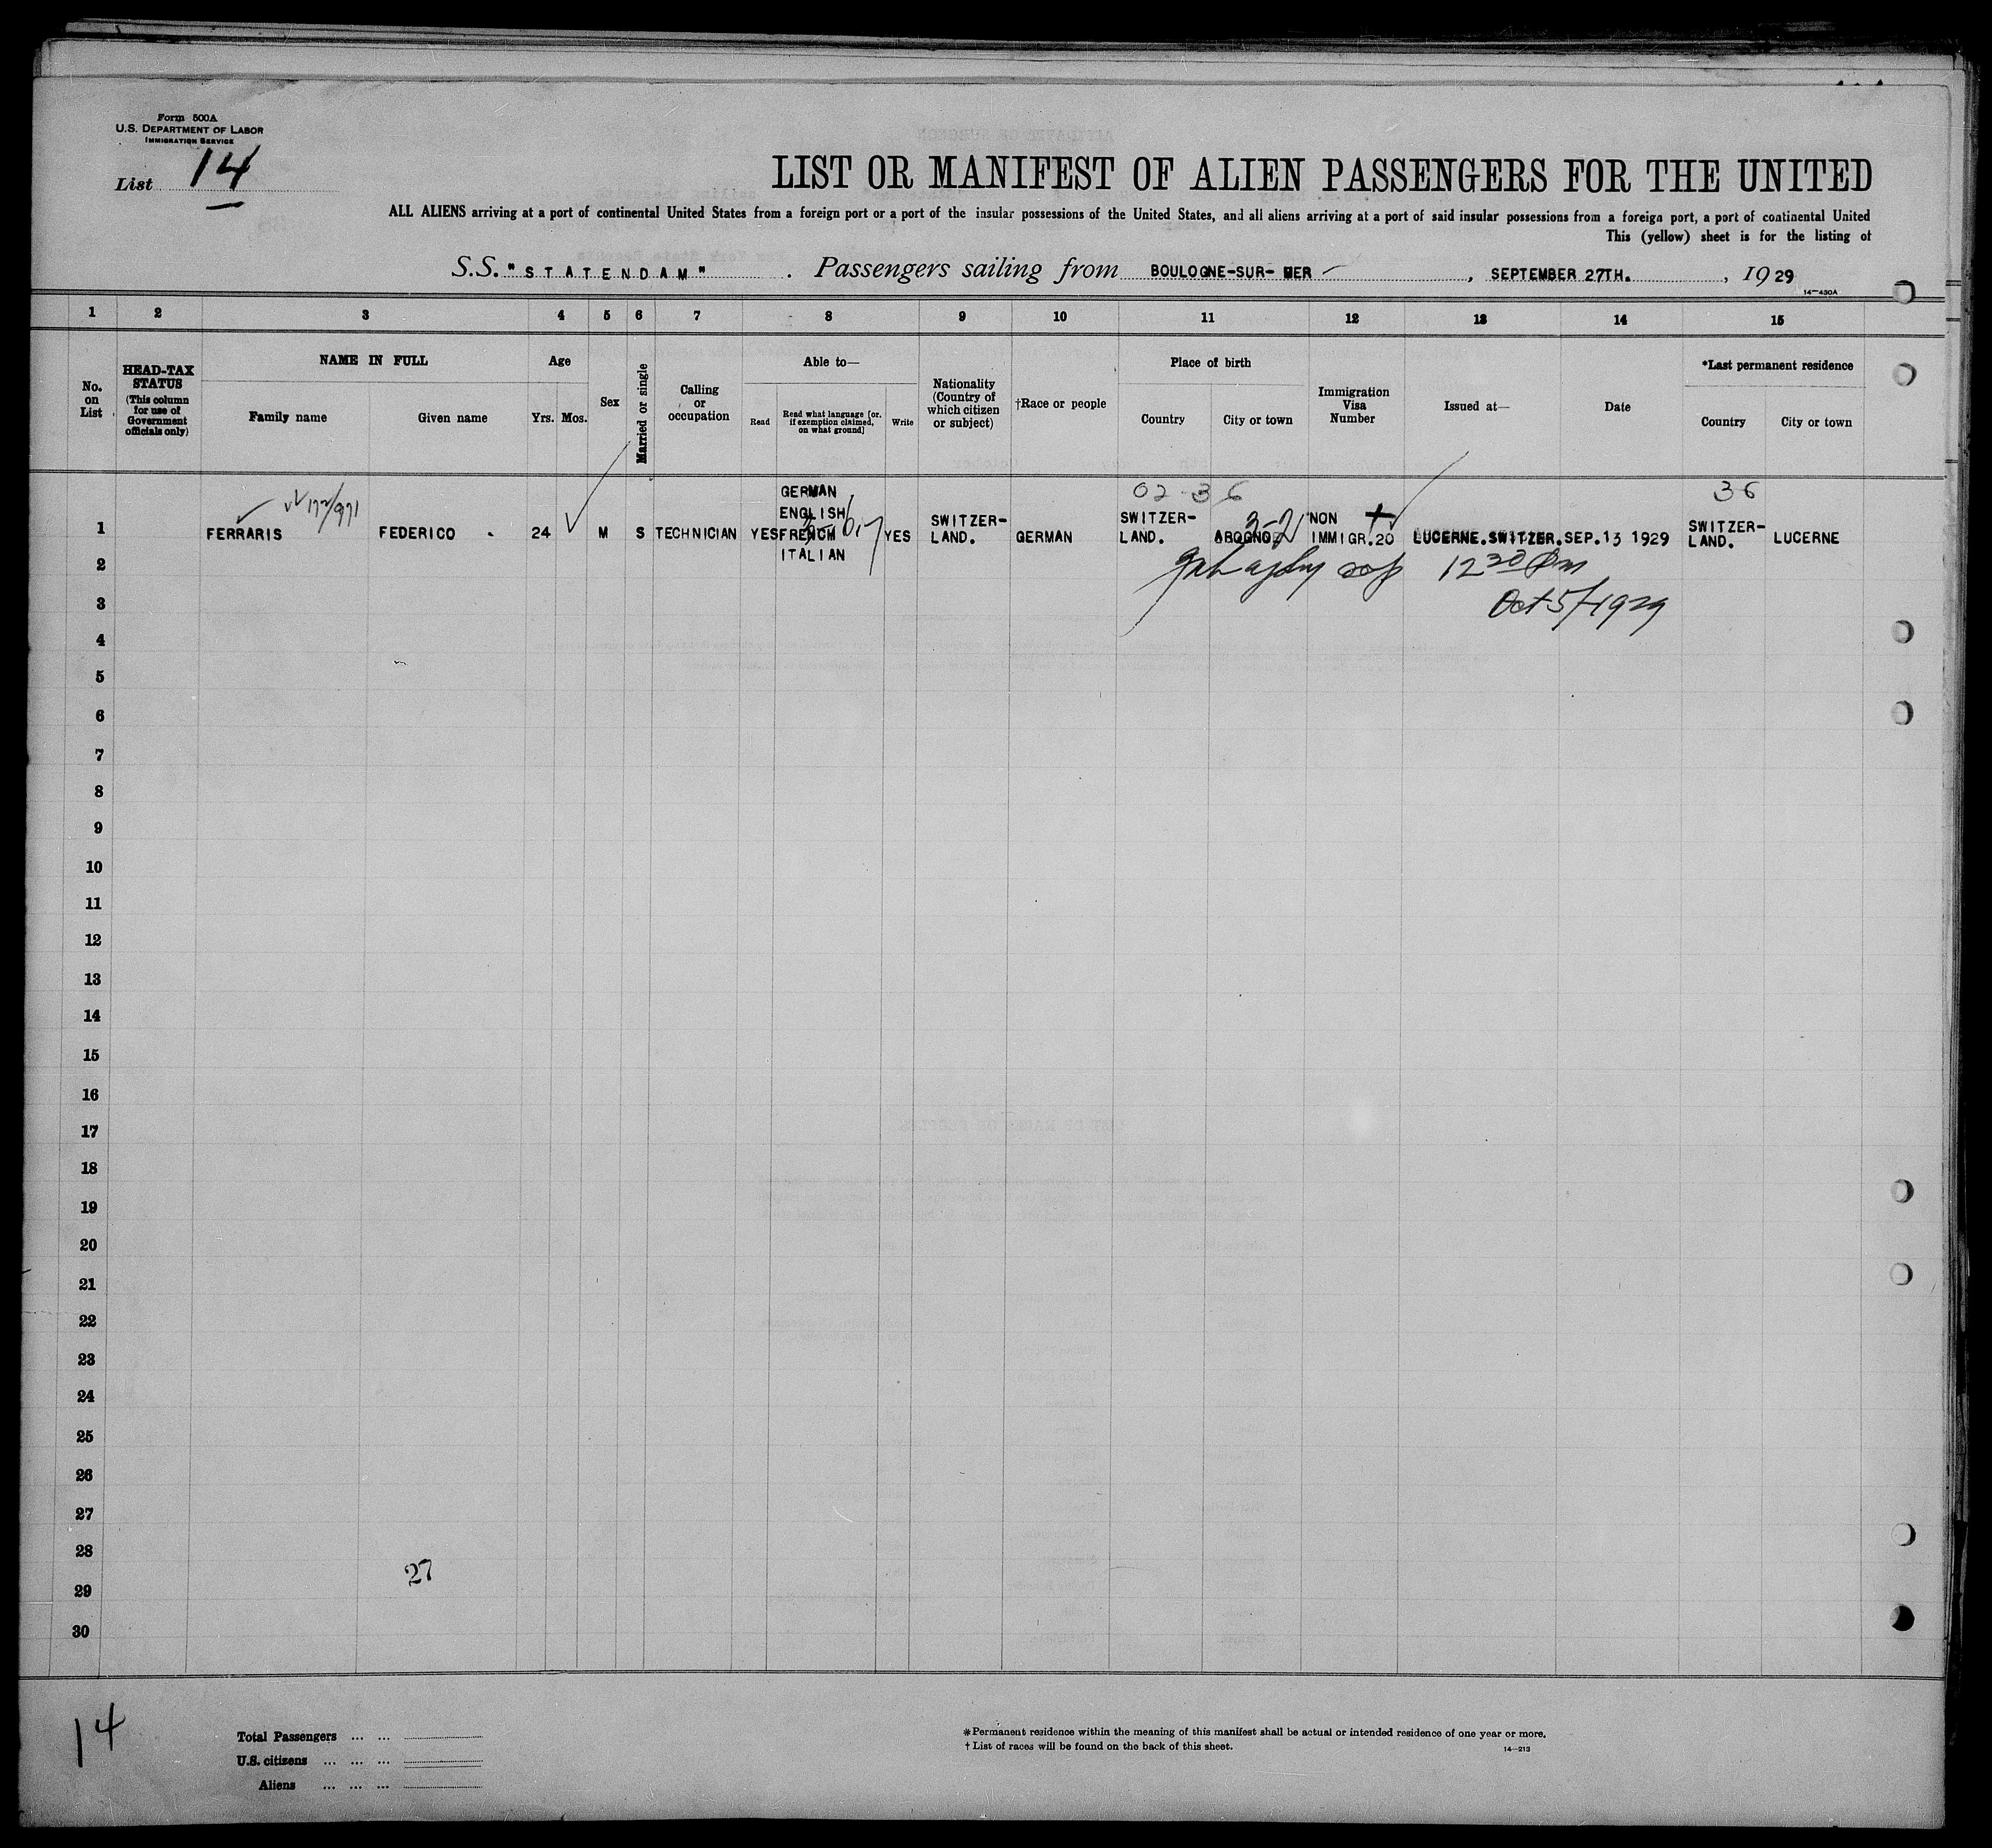 Form 500A
U.S. DEPARTMENT OF LABOR
IMMIGRATION SERVICE
List 14
LIST OR MANIFEST OF ALIEN PASSENGERS FOR THE UNITED
ALL ALIENS arriving at a port of continental United States from a foreign port or a port of the insular possessions of the United States, and all aliens arriving at a port of said insular possessions from a foreign port, a port of continental United
This (yellow) sheet is for the listing of
S.S. "STATENDAM" . Passengers sailing from BOULOGNE-SUR-MER , SEPTEMBER 27TH. , 1929
14-430A
1 2 3 4 5 6 7 8 9 10 11 12 13 14 15
No. on List
HEAD-TAX STATUS (This column for use of Government officials only)
NAME IN FULL
Family name Given name
Age
Yrs. Mos.
Sex
Married or single
Calling or occupation
Able to—
Read
Read what language [or, if exemption claimed, on what ground]
Write
Nationality (Country of which citizen or subject)
†Race or people
Place of birth
Country City or town
Immigration Visa Number
Issued at—
Date
*Last permanent residence
Country City or town
02 36 36
1 FERRARIS FEDERICO 24 M S TECHNICIAN YES GERMAN ENGLISH FRENCH ITALIAN YES SWITZER-LAND. GERMAN SWITZER-LAND. AROGNO NON IMMIGR.20 LUCERNE.SWITZER. SEP.13 1929 SWITZER-LAND. LUCERNE
2 12 30 Pm
3 Oct 5/1929
4
5
6
7
8
9
10
11
12
13
14
15
16
17
18
19
20
21
22
23
24
25
26
27
28
27
29
30
14
Total Passengers ... ...
U.S. citizens ... ... ...
Aliens ... ... ...
*Permanent residence within the meaning of this manifest shall be actual or intended residence of one year or more.
† List of races will be found on the back of this sheet.
14-213